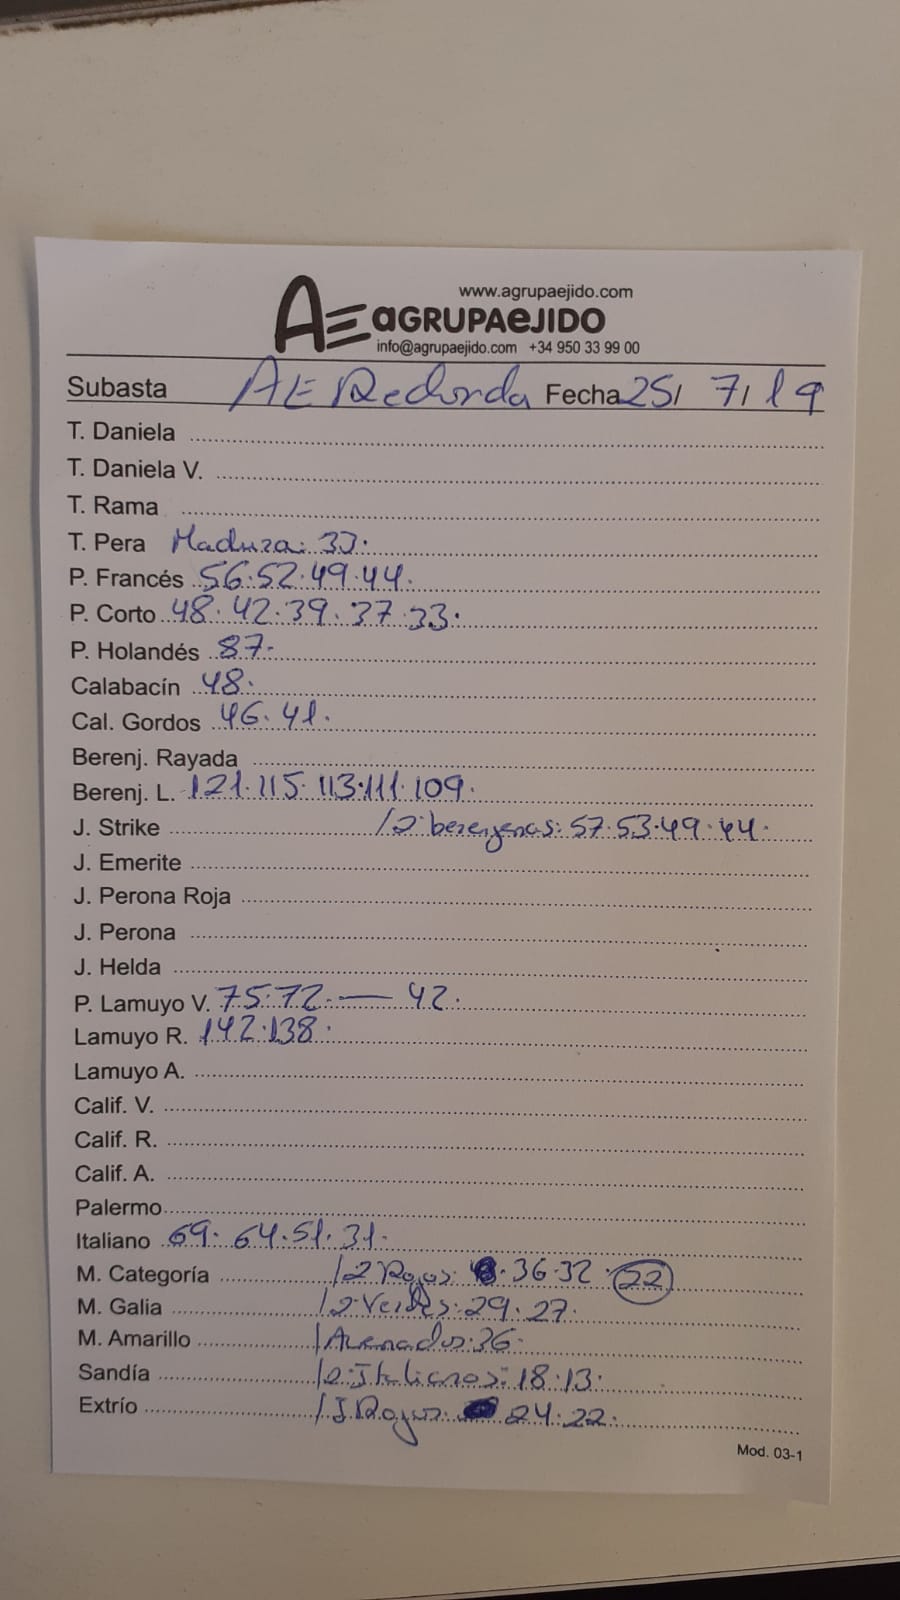 www.agrupaejido.com
AE aGRUPAeJIDO
info@agrupaejido.com +34 950 33 99 00
Subasta AE Redonda Fecha 25/ 7/ 19
T. Daniela
T. Daniela V.
T. Rama
T. Pera Madura: 33.
P. Francés 56.52.49.44.
P. Corto 48.42.39.37.33.
P. Holandés 87.
Calabacín 48.
Cal. Gordos 46.41.
Berenj. Rayada
Berenj. L. 121.115.113.111.109.
J. Strike /2ª berenjenas: 57.53.49.44.
J. Emerite
J. Perona Roja
J. Perona
J. Helda
P. Lamuyo V. 75.72. — 42.
Lamuyo R. 142.138.
Lamuyo A.
Calif. V.
Calif. R.
Calif. A.
Palermo
Italiano 69. 64.51.31.
M. Categoría /2 Rojos: 36.32.22
M. Galia /2 Verdes: 29.27.
M. Amarillo /Asurcados: 36.
Sandía /2 Italianos: 18.13.
Extrío /J. Rojos: 24.22.
Mod. 03-1